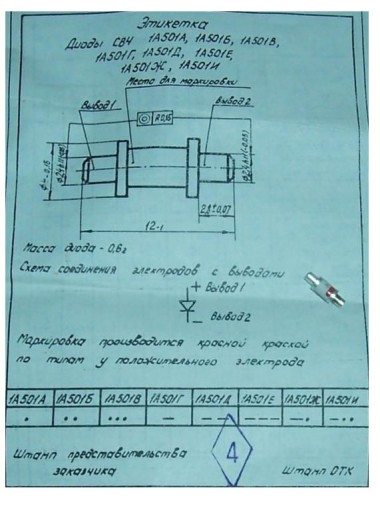 Этикетка
Диоды СВЧ 1А501А, 1А501Б, 1А501В,
1А501Г, 1А501Д, 1А501Е,
1А501Ж, 1А501И
Место для маркировки
Вывод 1
Вывод 2
12-1
Масса диода - 0,6г
Схема соединения электродов с выводами
+ Вывод 1
- Вывод 2
Маркировка производится красной краской
по типам у положительного электрода
1А501А 1А501Б 1А501В 1А501Г 1А501Д 1А501Е 1А501Ж 1А501И
• •• ••• — — — — — — —• —••
Штамп представительства
заказчика
4
Штамп ОТК